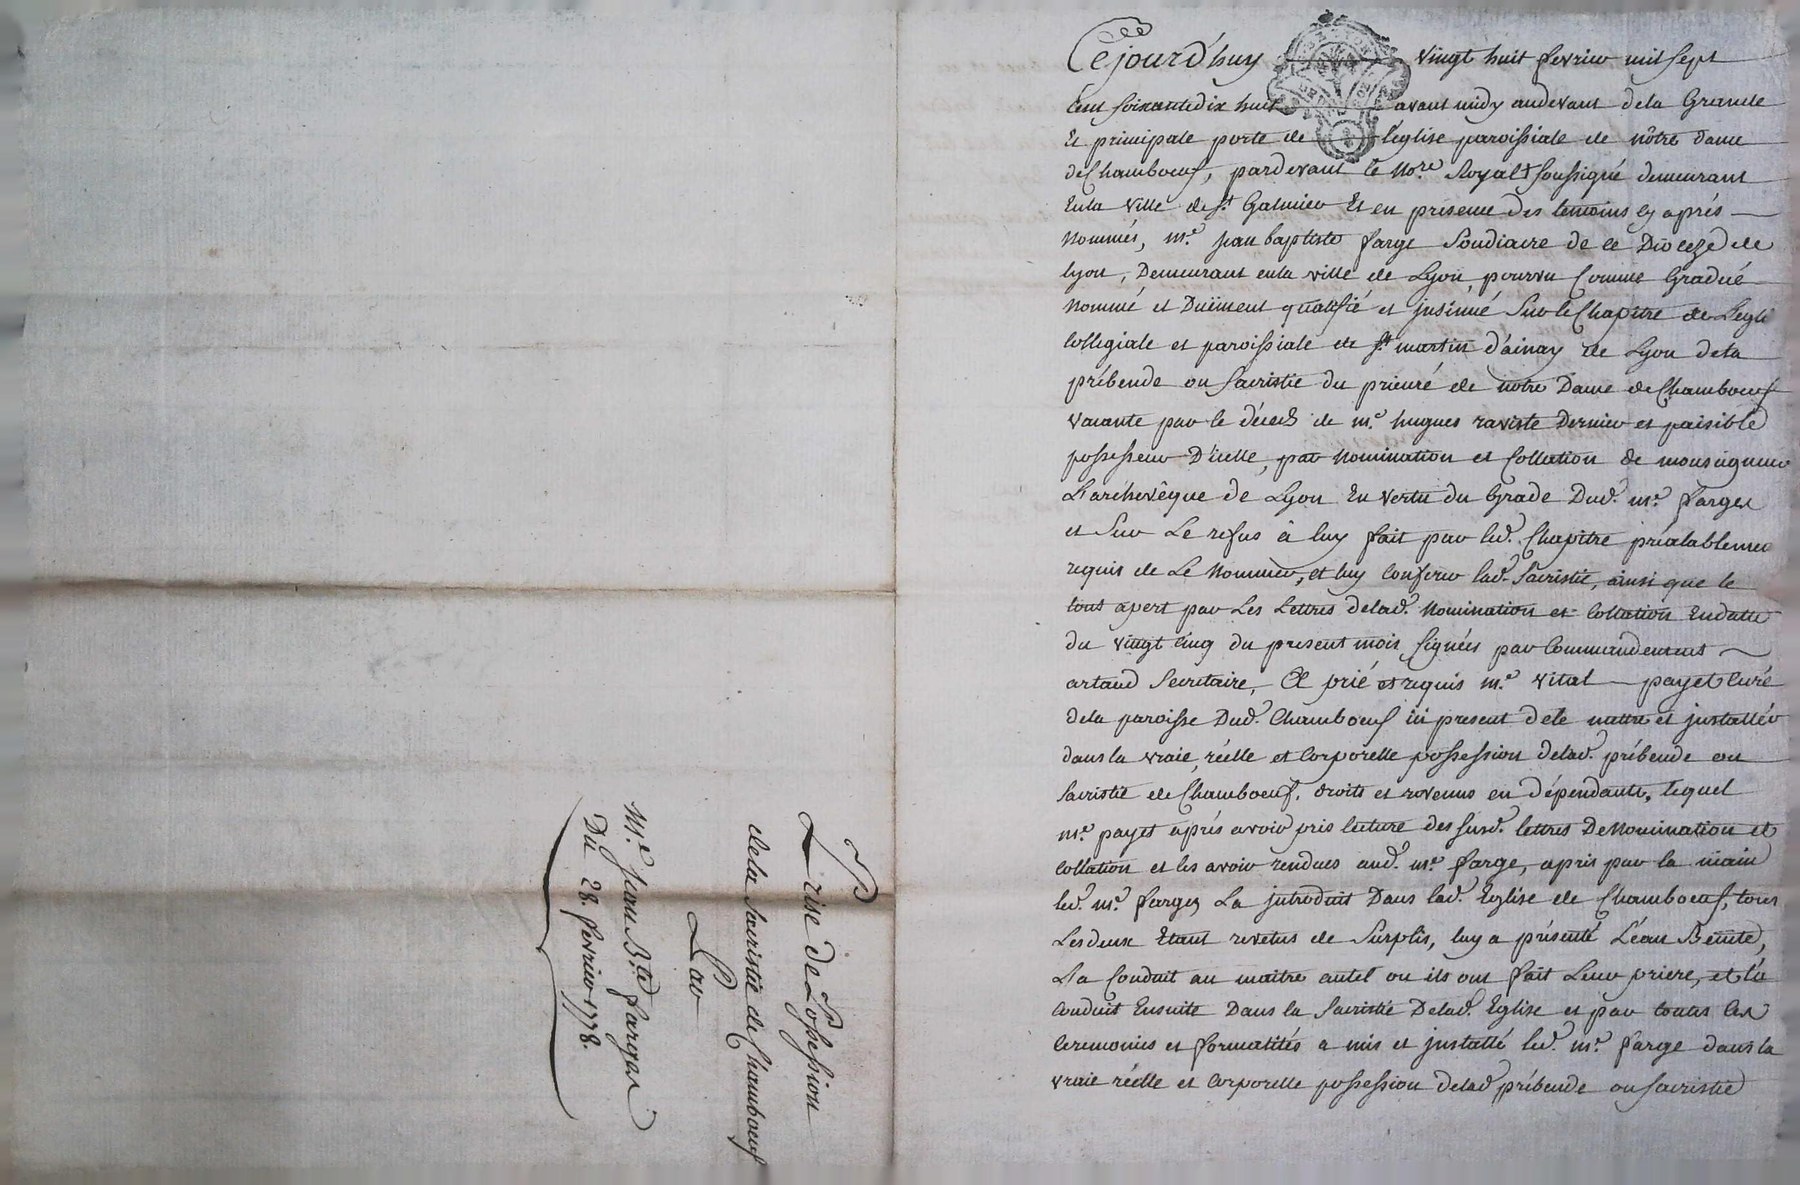 Cejourd'huy vingt huit fevrier mil sept
cent soixante dix huit avant midy audevant dela Grande
Et principale porte de l'eglise paroissiale de nôtre dame
de Chamboeuf, pardevant le No.re Royal soussigné demeurant
Enla ville de st Galmier Et en presence des temoins cy aprés
Nommés, m.e jean baptiste farge Soudiacre de ce Diocèze de
lyon, Demeurant enla ville de Lyon, pourvu Comme Gradué
Nommé et Duëment qualifié et insinué Sur le Chapitre de L'egli
Collegiale et paroissiale de st martin d'ainay de Lyon dela
prébende ou Sacristie du prieuré de notre Dame de Chamboeuf
vacante par le décès de m.e hugues raviste Dernier et paisible
possesseur D'icelle, par Nomination et Collation de monseigneur
L'archevêque de Lyon En vertu du Grade Dud. m.e farges
et Sur Le refus à luy fait par led. Chapitre préalableme
requis de Le Nommer, et luy conferer lad. Sacristie, ainsi que le
tout apert par Les Lettres delad. Nomination et Collation Endatte
du vingt cinq du present mois signées par Commandement
artaud Secretaire, A prié et requis m.e vital payet Curé
dela paroisse Dud. Chamboeuf ici present de le mettre et installér
dans la vraie, réelle et corporelle possession delad. prébende ou
Sacristie de Chamboeuf, droits et revenus en dépendants, lequel
m.e payet aprés avoir pris lecture des susd. lettres De Nomination et
Collation et les avoir rendues aud. m.e farge, a pris par la main
led. m.e farges La introduit Dans lad. Eglise de Chamboeuf, tous
Les deux Etant revetus de Surplis, luy a présenté L'eau Benite,
La Conduit au maitre autel ou ils ont fait Leur priere, et l'a
conduit Ensuite Dans la Sacristie Delad. Eglise et par toutes les
Ceremonies et formalités a mis et installé led. m.e farge dans la
vraie réelle et corporelle possession delad. prébende ou Sacristie
Prise de Possession
dela Sacristie de Chamboeuf
Par
M.e jean B.te farges
Du 28. fevrier 1778.